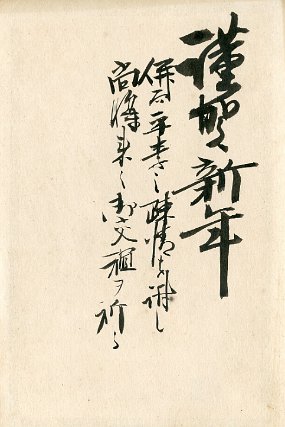 謹賀新年
併而平素之疎情を謝し
尚将来之御交誼ヲ祈る